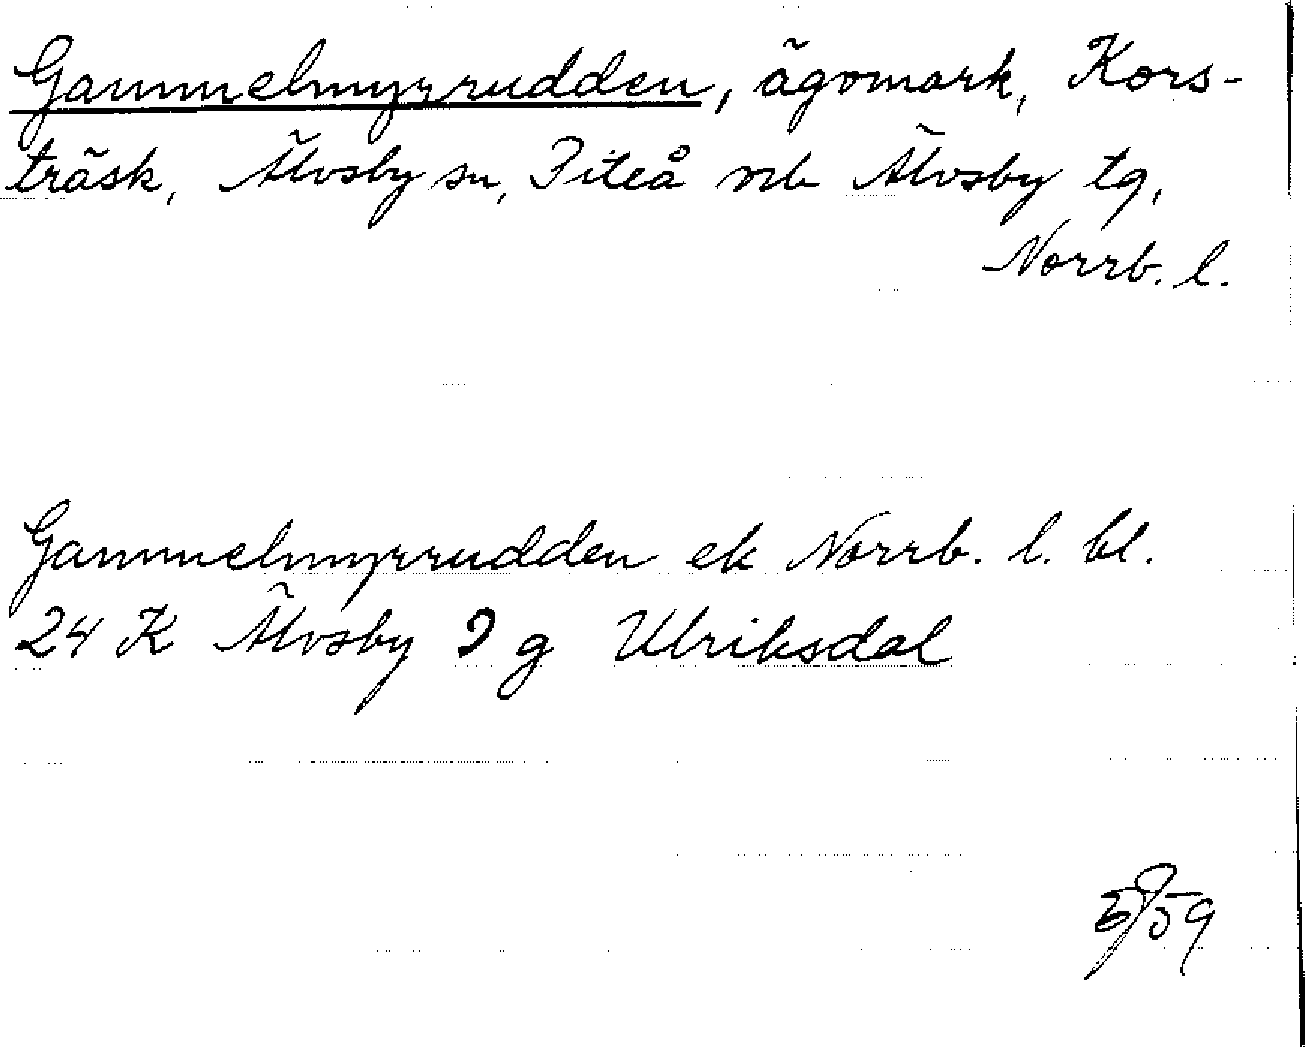 Gammelmyrrudden, ägomark, Kors-
träsk, Älvsby sn, Piteå och Älvsby tg,
Norrb. l.
Gammelmyrrudden ek Norrb. l. bl.
24 K Älvsby 9 g Ulriksdal